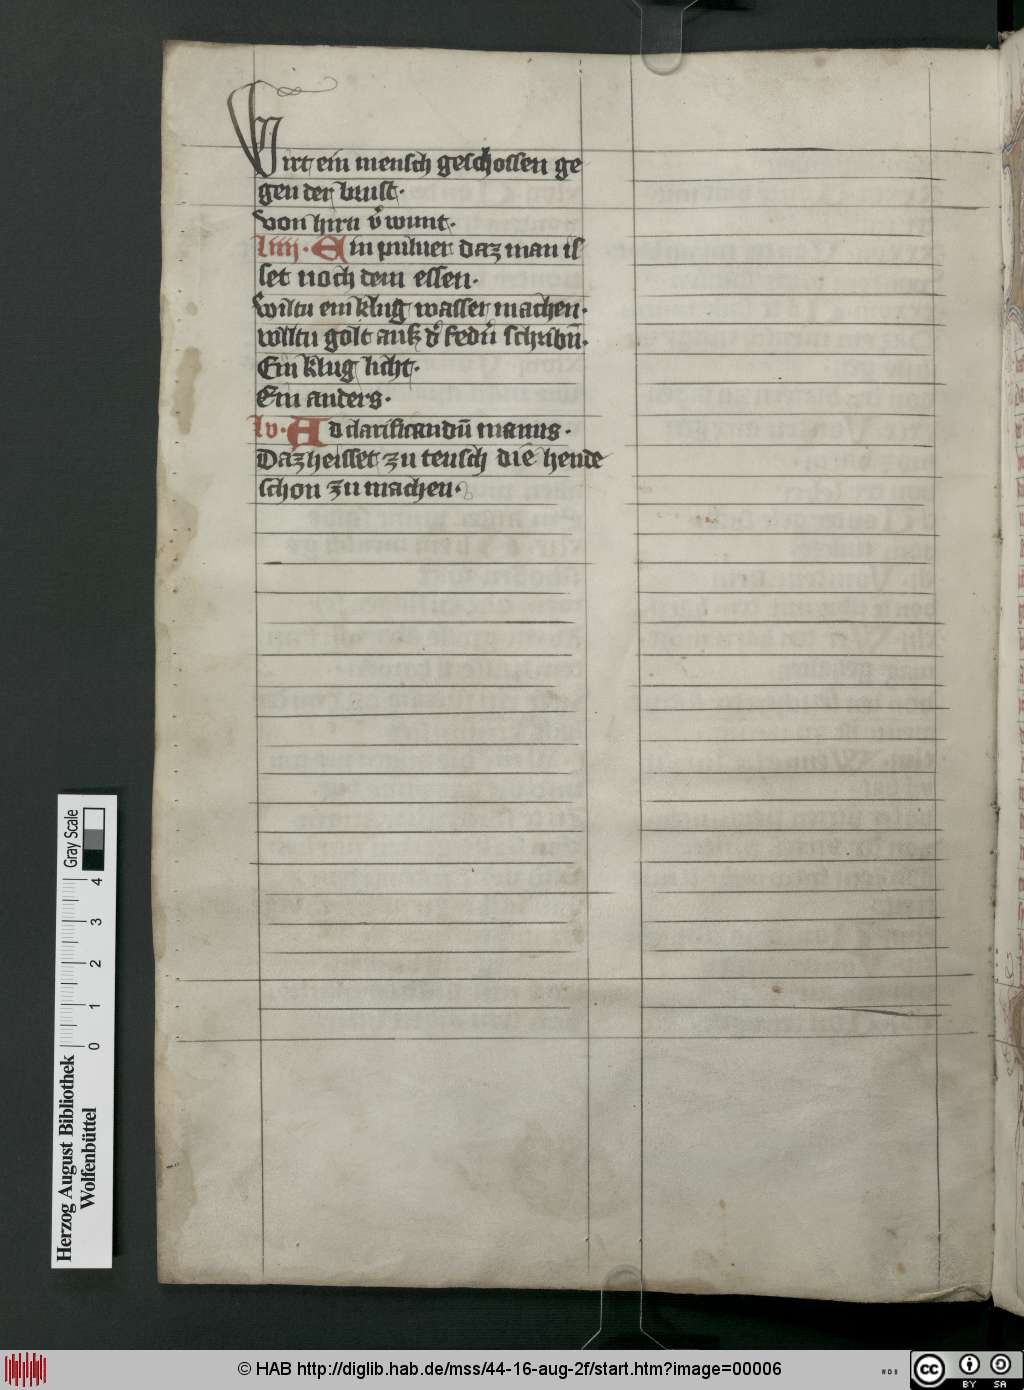 Wirt ein mensch geschossen ge
gen der brust·
von hirn v̾wunt·
liiij· Ein puluer daz man is
set noch dem essen·
wiltu ein klug wasser machen·
wiltu golt auß d̾ fed̾n schribn̄·
Ein klug licht·
Ein anders·
lv· Ad clarificandū manus·
Daz heisset zu teusch die hende
schon zu machen·
Herzog August Bibliothek
Wolfenbüttel
0 1 2 3 4
Gray Scale
© HAB http://diglib.hab.de/mss/44-16-aug-2f/start.htm?image=00006
WDB
cc BY SA